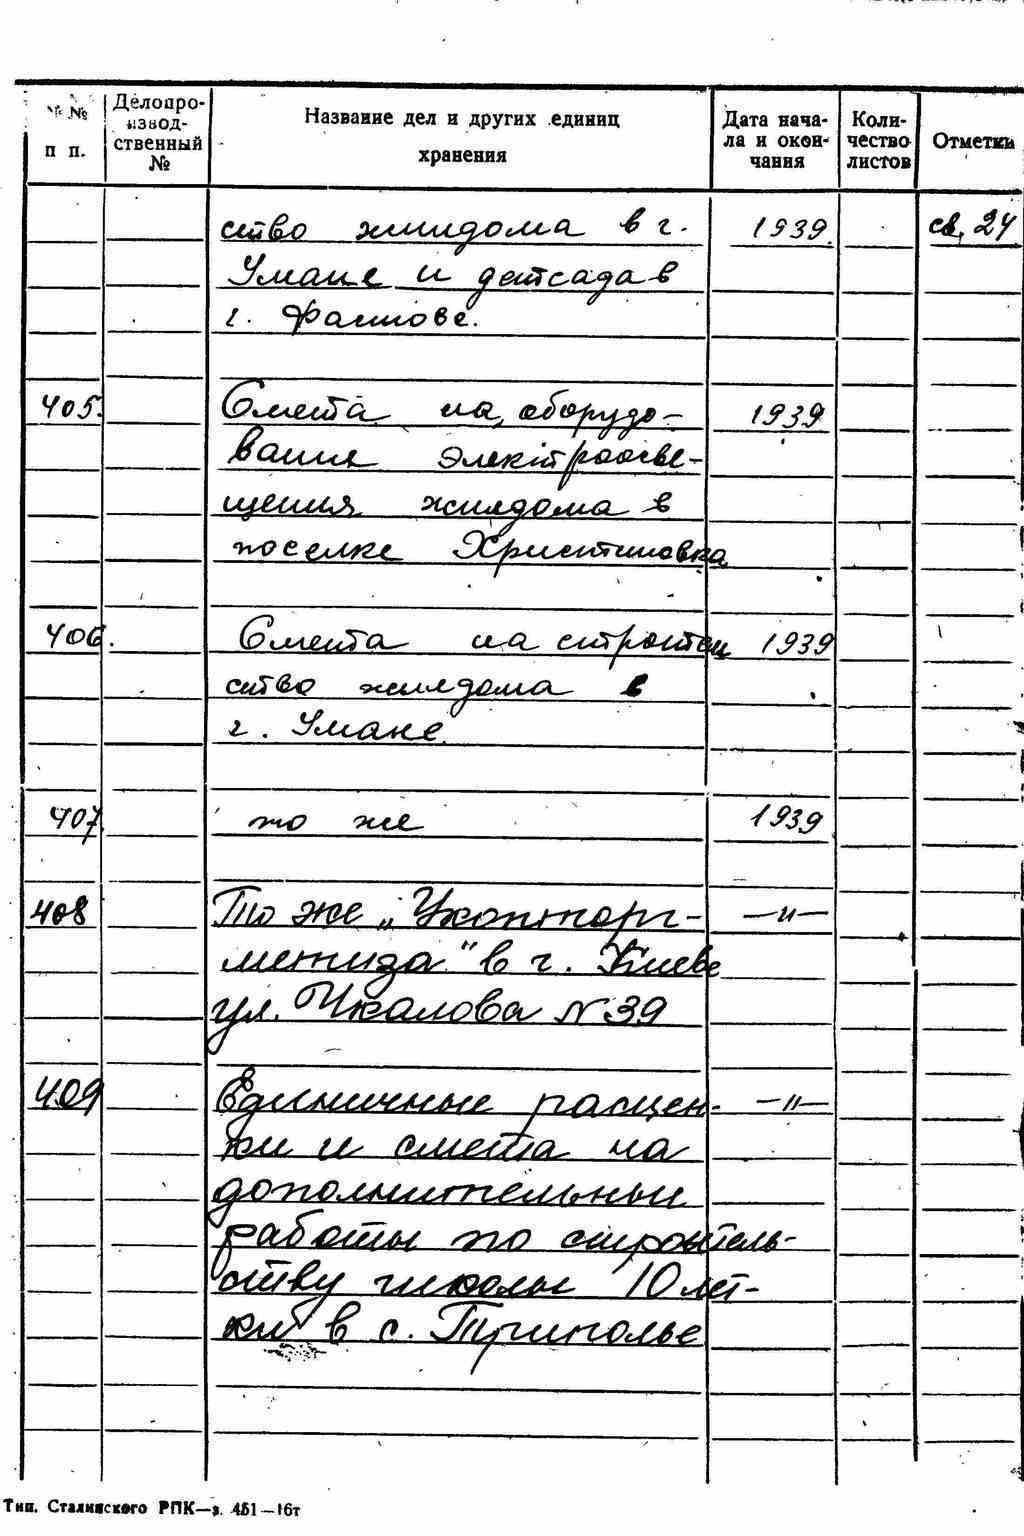 №№ п п.
Делопро-
извод-
ственный
№
Название дел и других единиц
хранения
Дата нача-
ла и окон-
чания
Коли-
чество
листов
Отметки
ство жилдома в г. 1939. св. 24
Умане и детсада в
г. Фастове.
405. Смета на оборудо- 1939
вание электроосве-
щения жилдома в
поселке Христиновка
406. Смета на строитель 1939
ство жилдома в
г. Умане.
407 то же 1939
408 То же „Укопторг- —„—
метиза" в г. Киеве
ул. Чкалова N 39
409 Единичные расцен- —„—
ки и смета на
дополнительные
работы по строитель-
ству школы 10 лет-
ки в с. Триполье
Тип. Сталинского РПК—з. 451—16т